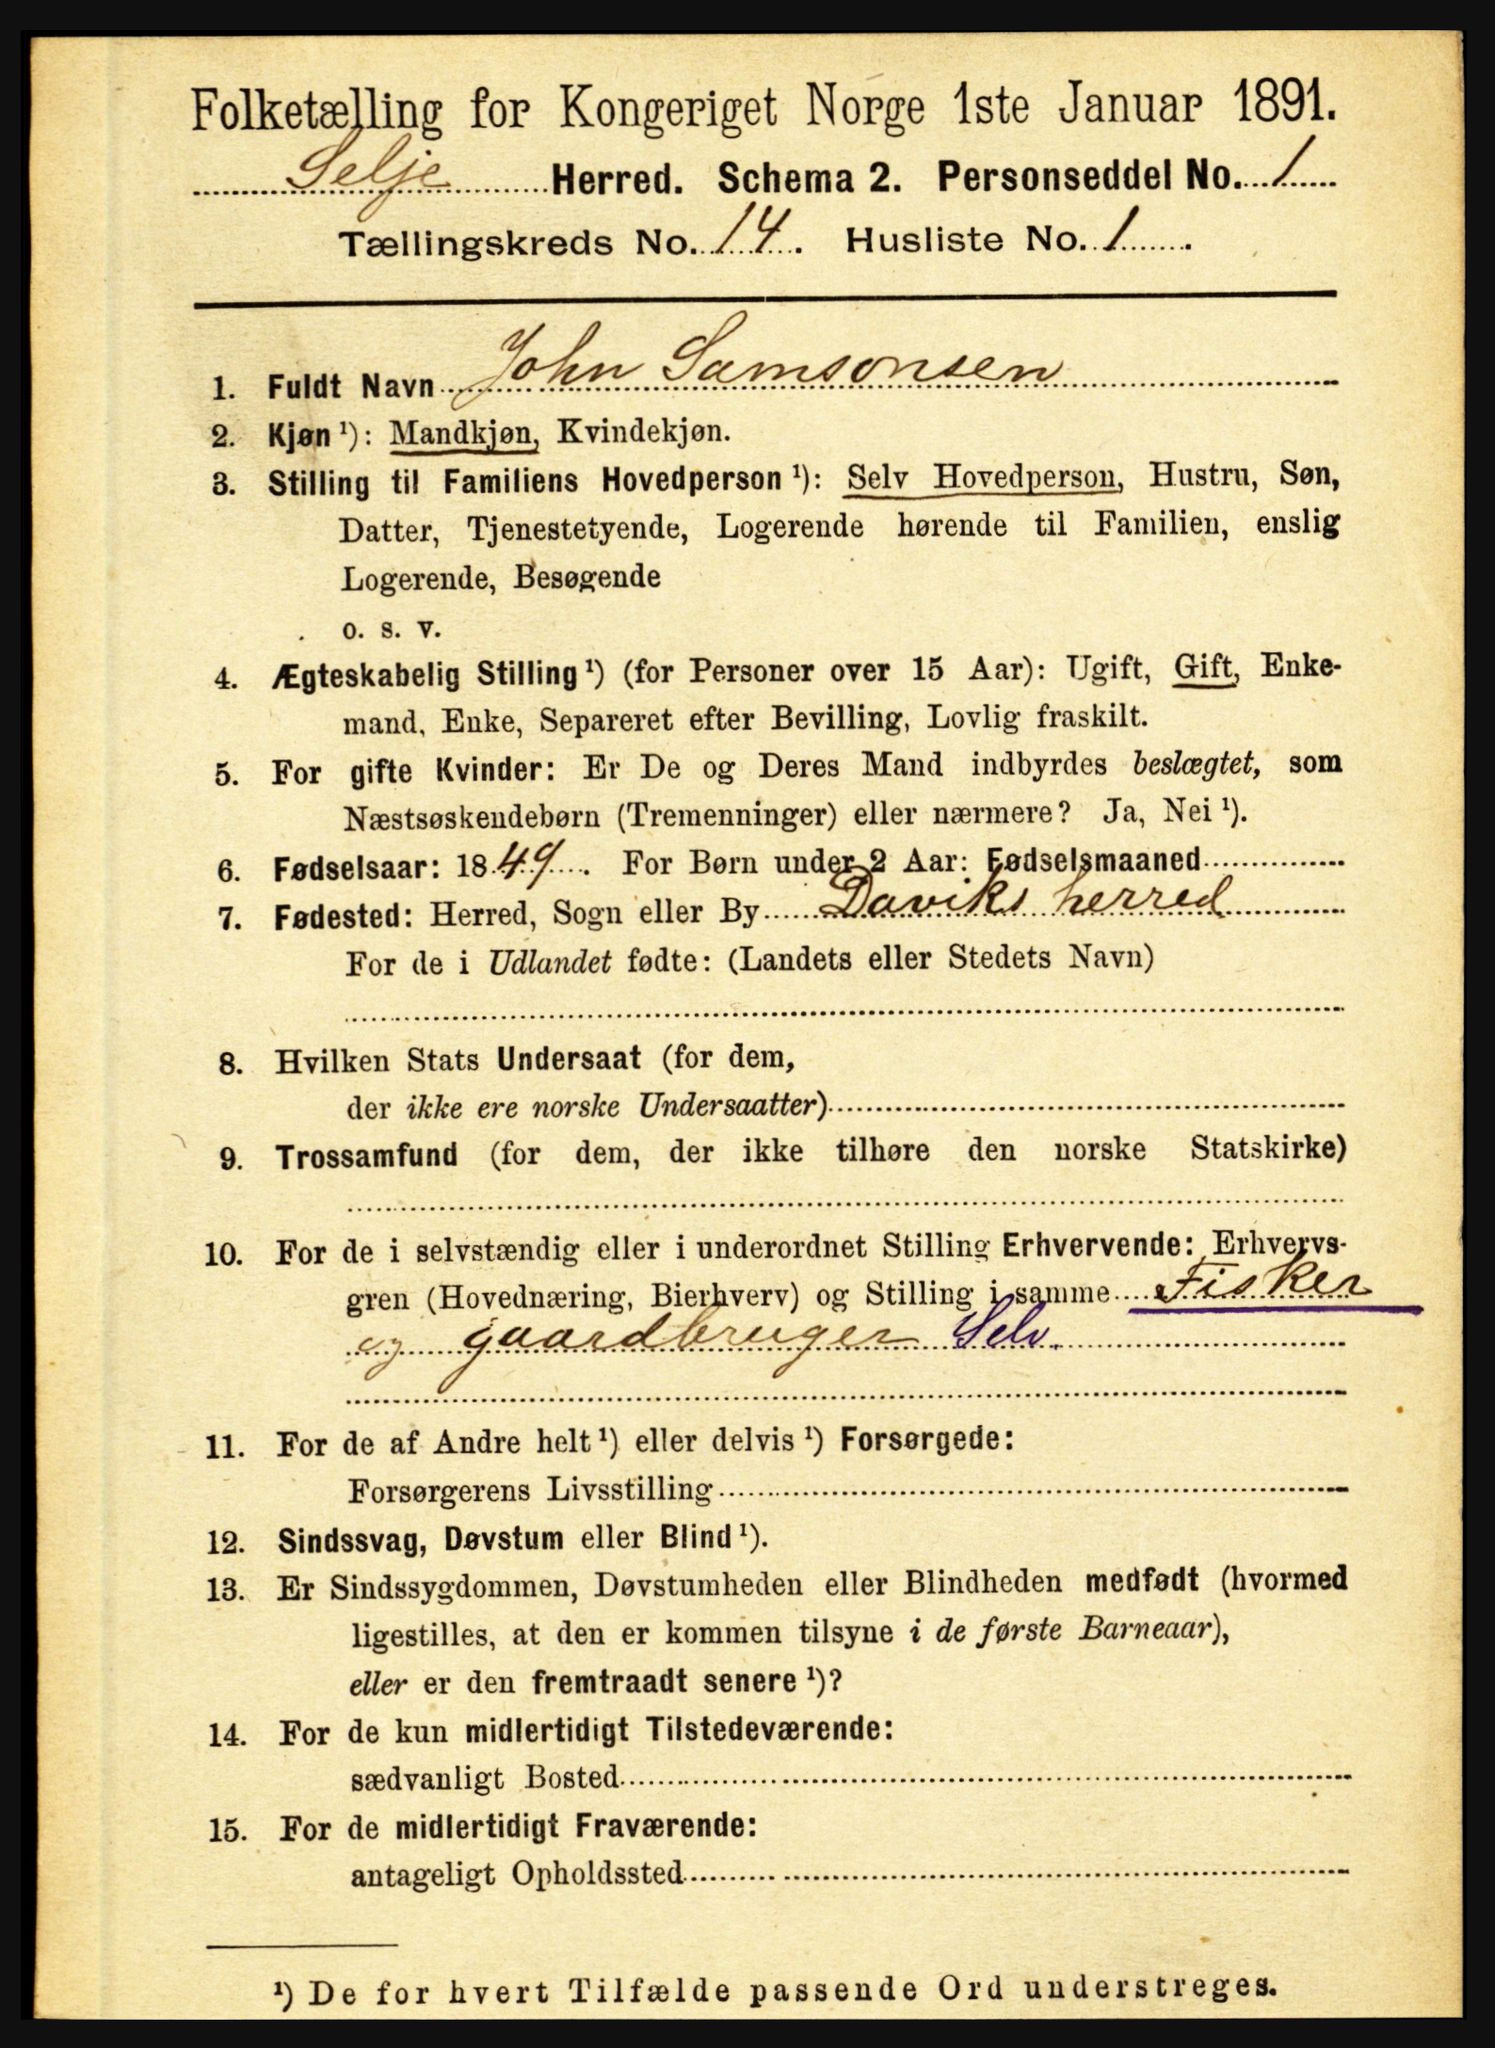 Folketælling for Kongeriget Norge 1ste Januar 1891.
Selje Herred. Schema 2. Personseddel No. 1
Tællingskreds No. 14. Husliste No. 1.
1. Fuldt Navn John Samsonsen
2. Kjøn ¹): Mandkjøn, Kvindekjøn.
3. Stilling til Familiens Hovedperson ¹): Selv Hovedperson, Hustru, Søn,
Datter, Tjenestetyende, Logerende hørende til Familien, enslig
Logerende, Besøgende
o. s. v.
4. Ægteskabelig Stilling ¹) (for Personer over 15 Aar): Ugift, Gift, Enke-
mand, Enke, Separeret efter Bevilling, Lovlig fraskilt.
5. For gifte Kvinder: Er De og Deres Mand indbyrdes beslægtet, som
Næstsøskendebørn (Tremenninger) eller nærmere? Ja, Nei ¹).
6. Fødselsaar: 1849. For Børn under 2 Aar: Fødselsmaaned
7. Fødested: Herred, Sogn eller By Daviks herred
For de i Udlandet fødte: (Landets eller Stedets Navn)
8. Hvilken Stats Undersaat (for dem,
der ikke ere norske Undersaatter)
9. Trossamfund (for dem, der ikke tilhøre den norske Statskirke)
10. For de i selvstændig eller i underordnet Stilling Erhvervende: Erhvervs-
gren (Hovednæring, Bierhverv) og Stilling i samme Fisker
og gaardbruger Selv.
11. For de af Andre helt ¹) eller delvis ¹) Forsørgede:
Forsørgerens Livsstilling
12. Sindssvag, Døvstum eller Blind ¹).
13. Er Sindssygdommen, Døvstumheden eller Blindheden medfødt (hvormed
ligestilles, at den er kommen tilsyne i de første Barneaar),
eller er den fremtraadt senere ¹)?
14. For de kun midlertidigt Tilstedeværende:
sædvanligt Bosted
15. For de midlertidigt Fraværende:
antageligt Opholdssted
¹) De for hvert Tilfælde passende Ord understreges.